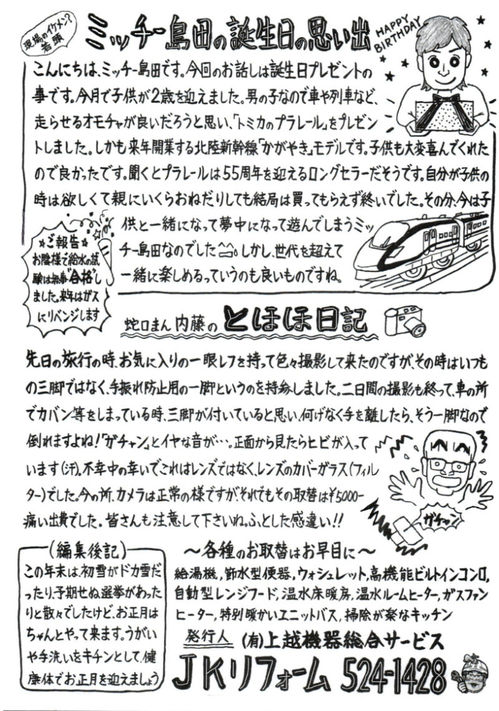 現場のイケメン?若頭
ミッチー島田の誕生日の思い出
HAPPY BIRTHDAY
こんにちは、ミッチー島田です。今回のお話しは誕生日プレゼントの
事です。今月で子供が2歳を迎えました。男の子なので車や列車など、
走らせるオモチャが良いだろうと思い、「トミカのプラレール」をプレゼン
トしました。しかも来年開業する北陸新幹線「かがやき」モデルです。子供も大変喜んでくれた
ので良かったです。聞くとプラレールは55周年を迎えるロングセラーだそうです。自分が子供の
時は欲しくて親にいくらおねだりしても結局は買ってもらえず終いでした。その分、今は子
供と一緒になって夢中になって遊んでしまうミッ
チー島田なのでした。しかし、世代を超えて
一緒に楽しめるっていうのも良いものですね。
☆ご報告☆
お陰様で給水の試
験は無事合格し
ました。来年はガス
にリベンジします
蛇口まん 内藤の とほほ日記
先日の旅行の時、お気に入りの一眼レフを持って色々撮影して来たのですが、その時はいつも
の三脚ではなく、手振れ防止用の一脚というのを持参しました。二日間の撮影も終って、車の所
でカバン等をしまっている時、三脚が付いていると思い、何げなく手を離したら、そう一脚なので
倒れますよね!「ガチャン」とイヤな音が…。正面から見たらヒビが入って
います(汗)。不幸中の幸いでこれはレンズではなく、レンズのカバーガラス(フィル
ター)でした。今の所、カメラは正常の様ですがそれでもその取替は¥5000-
痛い出費でした。皆さんも注意して下さいね。ふとした感違い!!
ガチッ
(編集後記)
この年末は、初雪がドカ雪だ
ったり、子期せぬ選挙があった
りと散々でしたけど、お正月は
ちゃんとやって来ます。うがい
や手洗いをキチンとして、健
康体でお正月を迎えましょう
～各種のお取替はお早目に～
給湯機,節水型便器,ウォシュレット,高機能ビルトインコンロ,
自動型レンジフード,温水床暖房,温水ルームヒーター,ガスファン
ヒーター,特別暖かいユニットバス,掃除が楽なキッチン
発行人 (有)上越機器総合サービス
JKリフォーム 524-1428